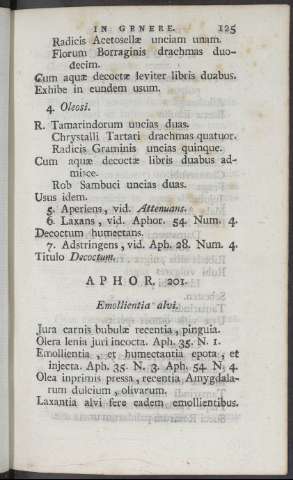 IN GENERE. 125
Radicis Acetosellæ unciam unam.
Florum Borraginis drachmas duo-
decim.
Cum aquæ decoctæ leviter libris duabus.
Exhibe in eundem usum.
4. Oleosi.
R. Tamarindorum uncias duas.
Chrystalli Tartari drachmas quatuor.
Radicis Graminis uncias quinque.
Cum aquæ decoctæ libris duabus ad-
misce.
Rob Sambuci uncias duas.
Usus idem.
5. Aperiens, vid. Attenuans.
6. Laxans, vid. Aphor. 54. Num. 4.
Decoctum humectans.
7. Adstringens, vid. Aph. 28. Num. 4.
Titulo Decoctum.
APHOR. 201.
Emollientia alvi.
Jura carnis bubulæ recentia, pinguia.
Olera lenia juri incocta. Aph. 35. N. 1.
Emollientia, et humectantia epota, et
injecta. Aph. 35. N. 3. Aph. 54. N. 4.
Olea inprimis pressa, recentia Amygdala-
rum dulcium, olivarum.
Laxantia alvi fere eadem emollientibus.